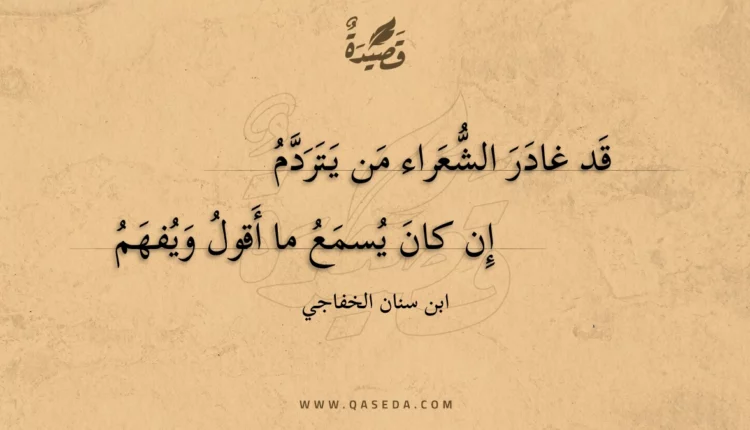 قَصِيْدَةٌ
قَد غادَرَ الشُّعَراء مَن يَتَرَدَّمُ
إِن كانَ يُسمَعُ ما أَقولُ وَيُفهَمُ
ابن سنان الخفاجي
WWW.QASEDA.COM